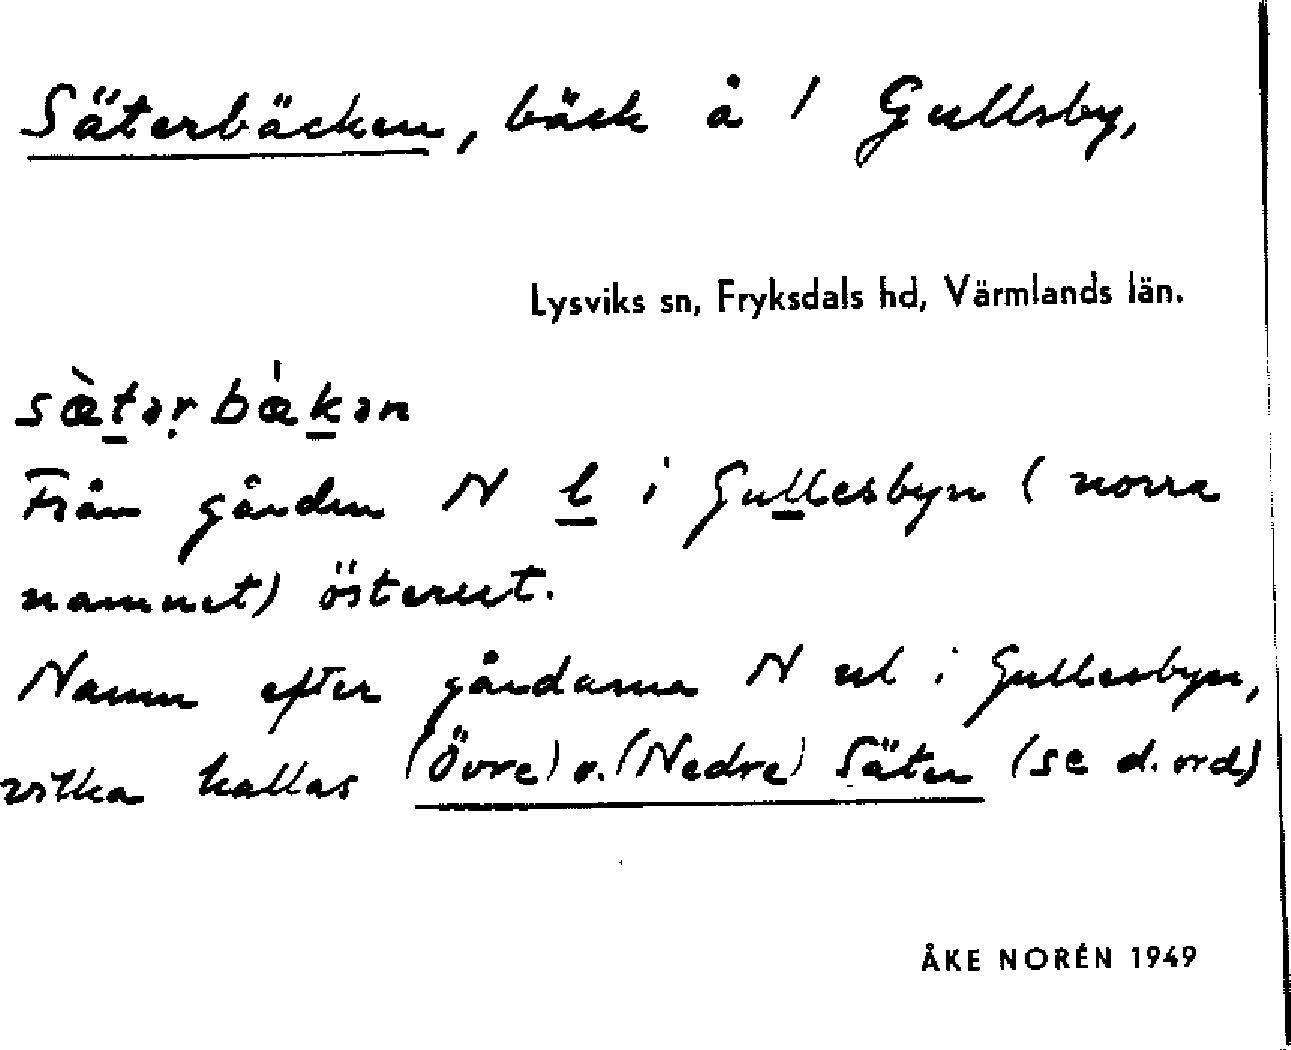 Säterbäcken, bäck å 1 Gullsby,
Lysviks sn, Fryksdals hd, Värmlands län.
sæ̀tərbæ̀kən
Från gården N l i Gullesbyn (norra
namnet) österut.
Namn efter gårdarna N ul i Gullesbyn,
vilka kallas (Övre) o. (Nedre) Säter (se d. ord)
ÅKE NORÉN 1949